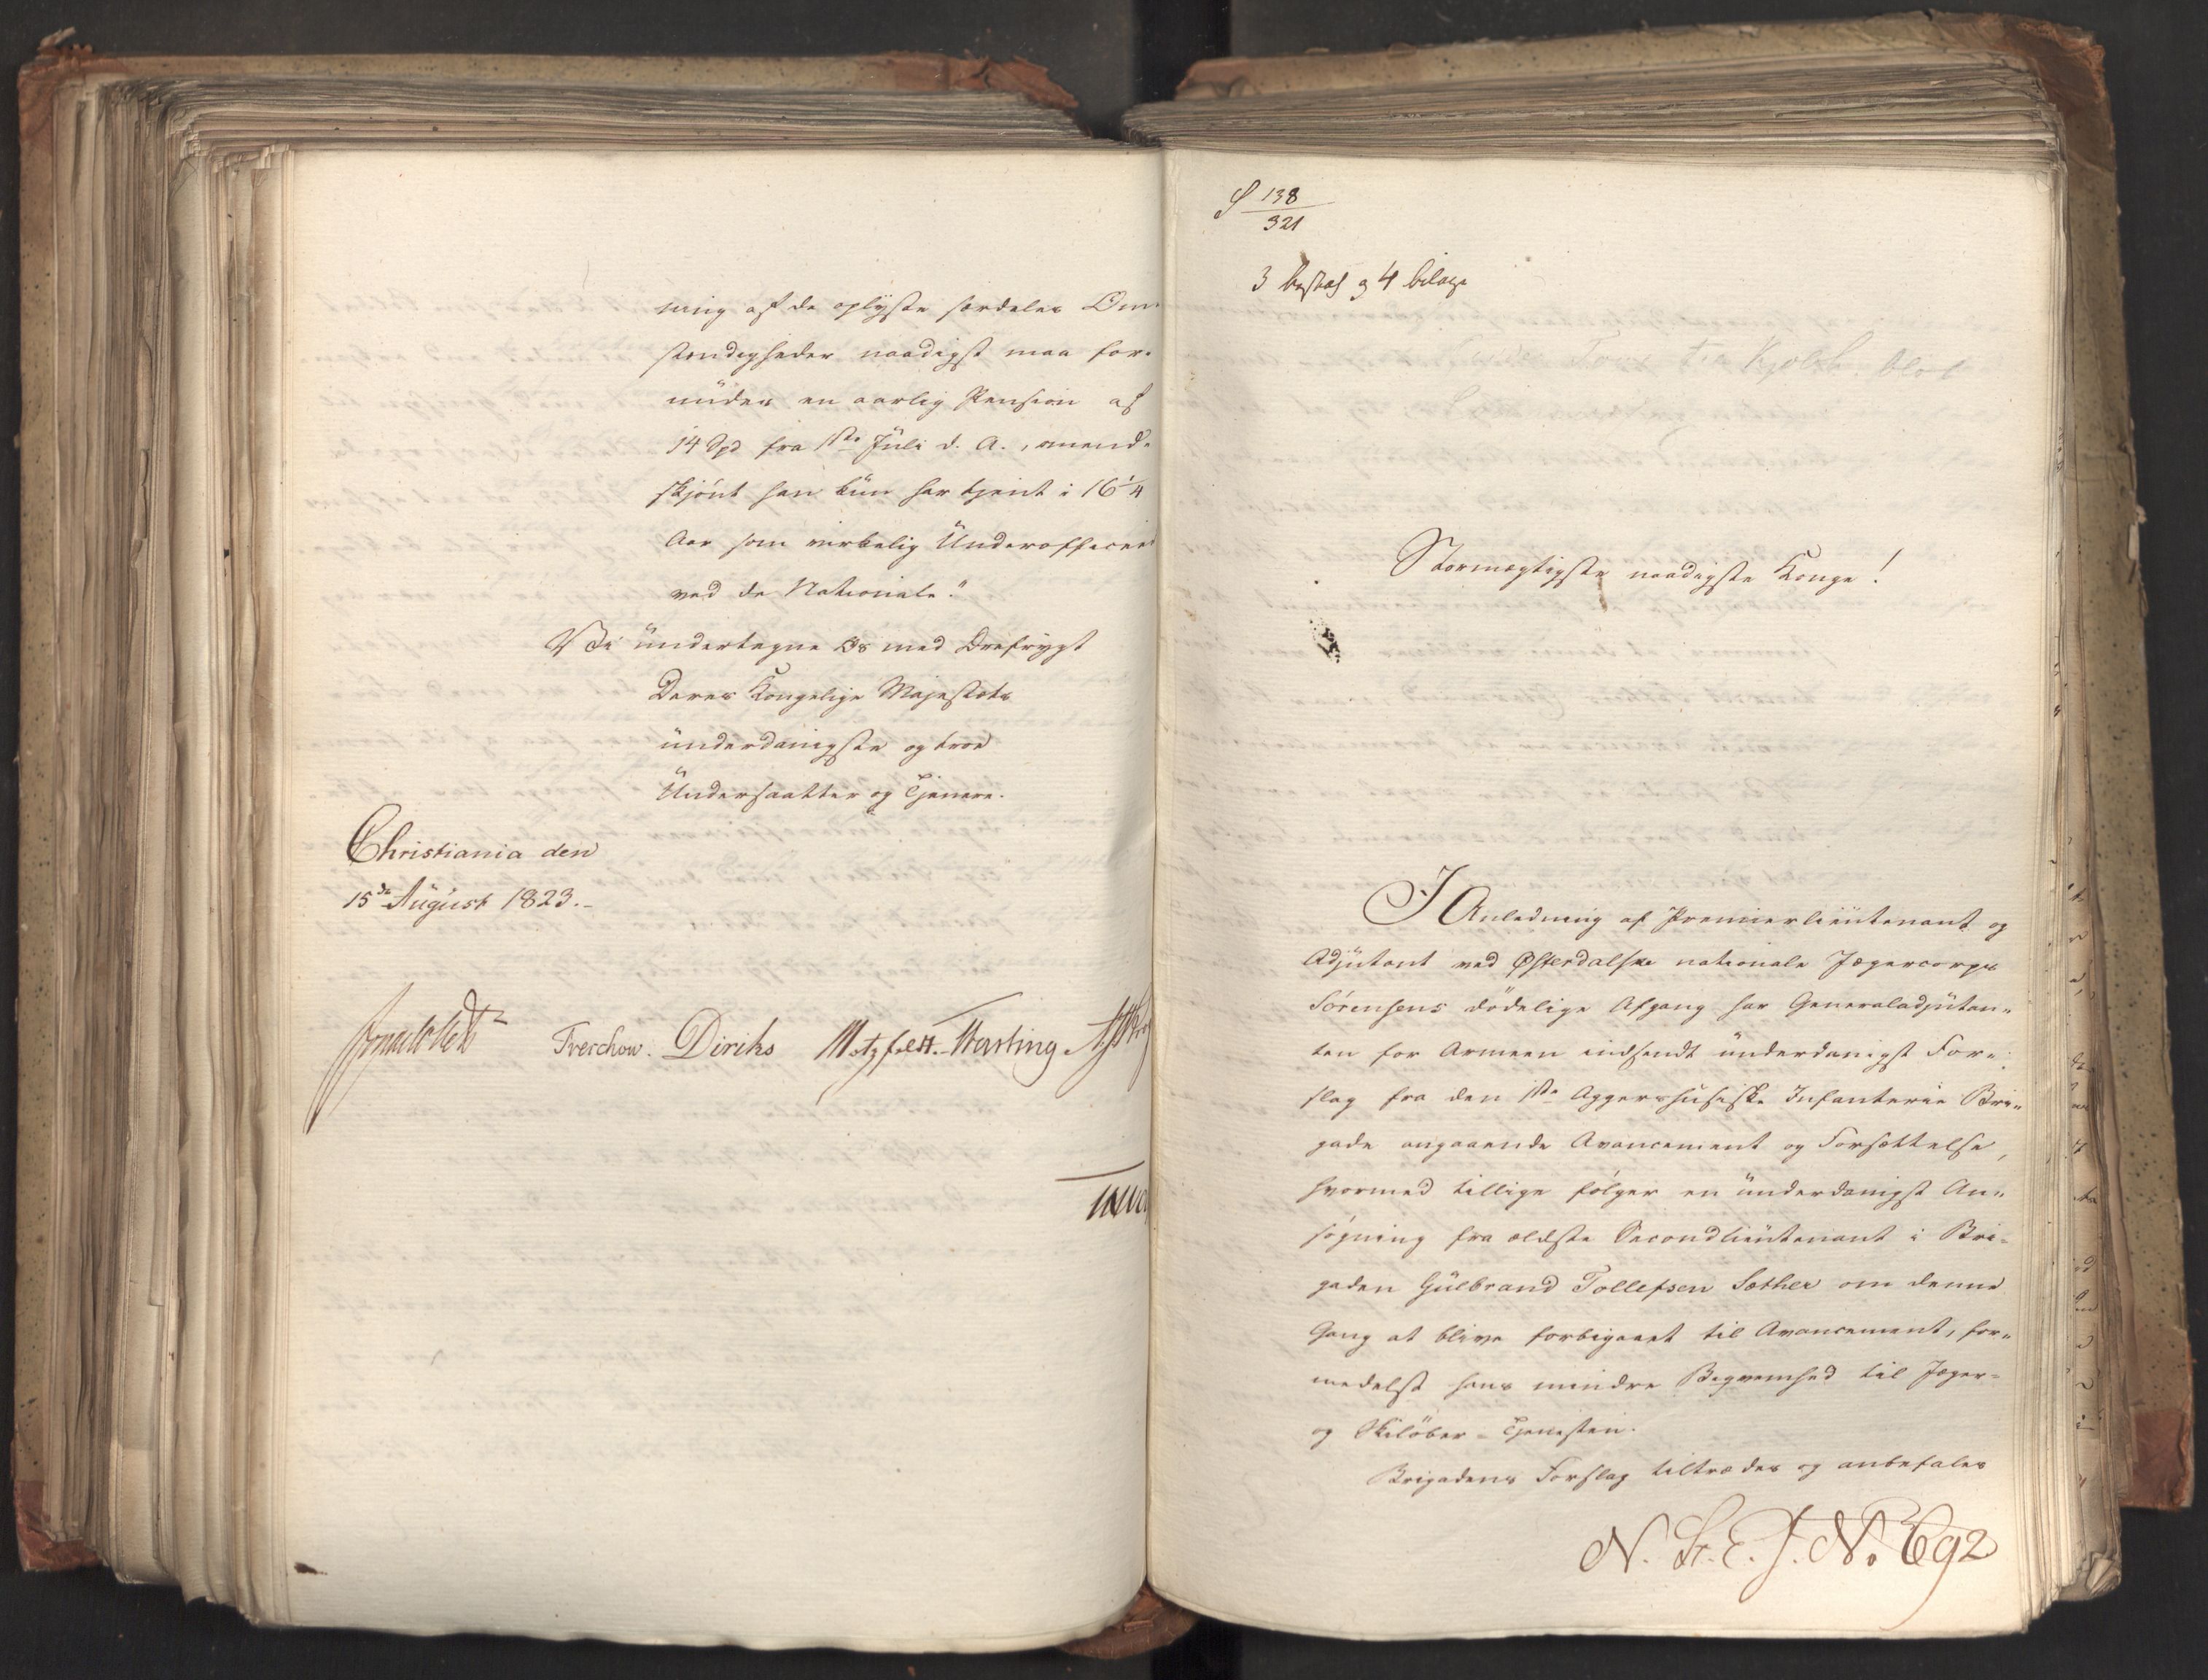 ning af de oplyste særdeles Om-
stændigheder naadigst maa for-
undes en aarlig Pension af
14 Spd fra 1ste Juli d. A., omend-
skjönt han kun har tjent i 16 1/4
Aar som virkelig Underofficeer
ved de Nationale."
Vi undertegne os med Ærefrygt
Deres Kongelige Majestæts
underdanigste og troe
Undersaatter og Tjenere.
Christiania den
15de August 1823.-
Treschow. Diriks Motzfeldt. Hasting
S 138
321
3 4 bilage
Stormægtigste naadigste Konge!
I Anledning af Premierlieutenant og
Adjutant ved Østerdalske nationale Jægercorps
Sörensens dödelige Afgang har Generaladjutan-
ten for Armeen indsendt underdanigst For-
slag fra den 1ste Aggershusiske Infanterie Bri-
gade angaaende Avancement og Forsættelse,
hvormed tillige fölger en underdanigst An-
sögning fra ældste Secondlieutenant i Bri-
gaden Gulbrand Tollefsen Sæther om denne
Gang at blive forbigaaet til Avancement, for-
medelst hans mindre Beqvemhed til Jæger-
og Skilöber-Tjenesten.
Brigadens Forslag tiltrædes og anbefales
N. St. E. J. No. 692